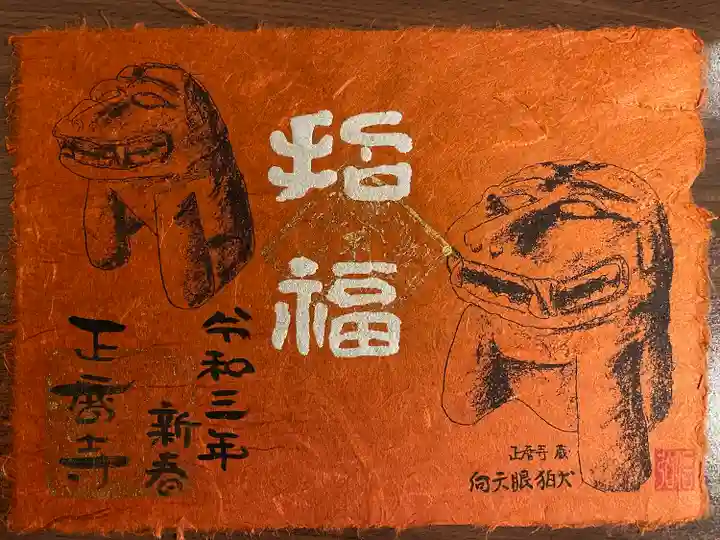 招福
令和三年
新春
正暦寺
正暦寺 蔵
向天眼狛犬